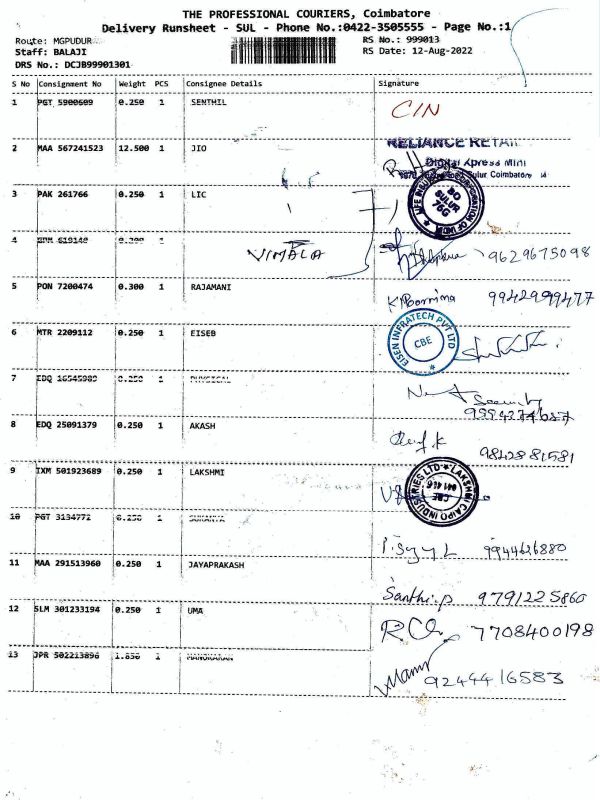 THE PROFESSIONAL COURIERS, Coimbatore
Delivery Runsheet - SUL - Phone No.:0422-3505555 - Page No.:1
Route: MGPUDUR RS No.: 999013
Staff: BALAJI RS Date: 12-Aug-2022
DRS No.: DCJB99901301
S No Consignment No Weight PCS Consignee Details Signature
1 PGT 5900609 0.250 1 SENTHIL CIN
2 MAA 567241523 12.500 1 JIO RELIANCE RETAI
Digital Xpress Mini
Sulur Coimbatore
3 PAK 261766 0.250 1 LIC
BO SULUR 76G
4 1
VIMALA 9629675098
5 PON 7200474 0.300 1 RAJAMANI K.Poornima 9942999477
6 MTR 2209112 0.250 1 EISEB EISEN INFRATECH PVT LTD CBE
7 EDQ 16545989 0.250 1 PHYSICAL
Security
9994274687
8 EDQ 25091379 0.250 1 AKASH 9842881581
9 IXM 501923689 0.250 1 LAKSHMI LAKSHMI CAIPO INDUSTRIES LTD CBE 641 416
10 PGT 3134772 0.250 1 SUKANYA 9944626880
11 MAA 291513960 0.250 1 JAYAPRAKASH Santhi.p 9791225860
12 SLM 301233194 0.250 1 UMA 7708400198
13 JPR 502213896 1.850 1 MANOHARAN Mani 9244416583